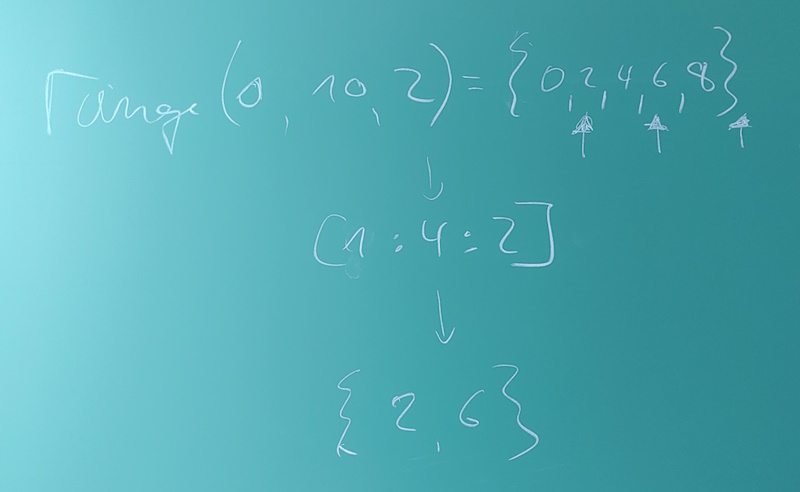 range(0, 10, 2) = {0, 2, 4, 6, 8}
[1:4:2]
{2, 6}